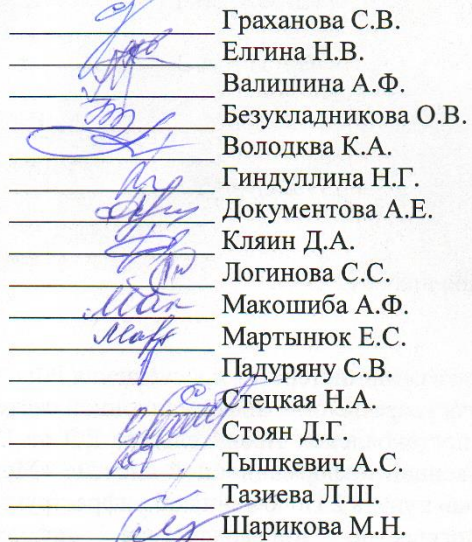 Граханова С.В.
Елгина Н.В.
Валишина А.Ф.
Безукладникова О.В.
Володква К.А.
Гиндуллина Н.Г.
Документова А.Е.
Кляин Д.А.
Логинова С.С.
Макошиба А.Ф.
Мартынюк Е.С.
Падуряну С.В.
Стецкая Н.А.
Стоян Д.Г.
Тышкевич А.С.
Тазиева Л.Ш.
Шарикова М.Н.